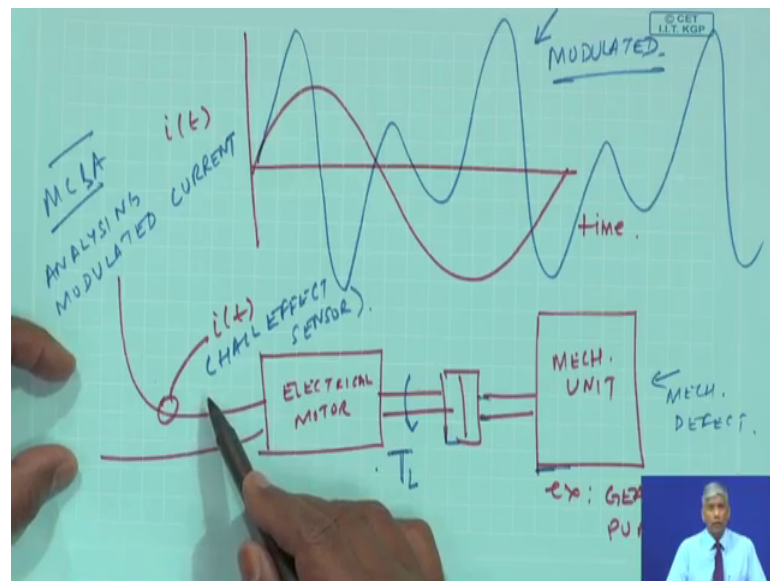 © CET
I.I.T. KGP
MODULATED.
i(t)
MCSA
ANALYSING
MODULATED CURRENT
time.
i(t)
(HALL EFFECT
SENSOR).
ELECTRICAL
MOTOR
TL
MECH.
UNIT
MECH.
DEFECT.
ex: